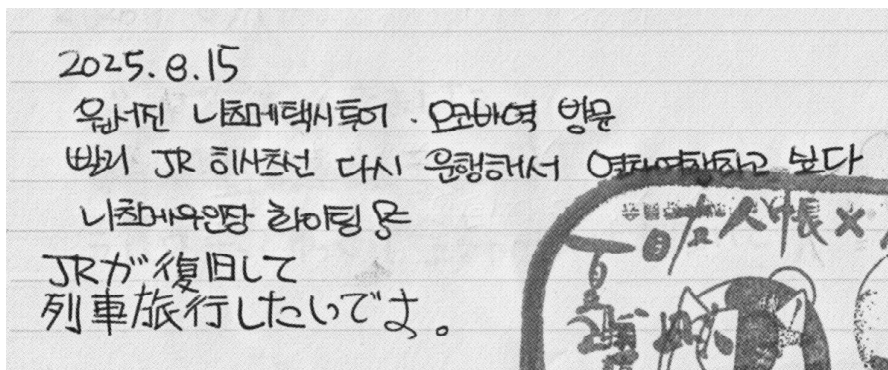 2025.8.15
유서진 나츠메택시투어 . 오코바역 방문
빨리 JR 히사츠선 다시 운행해서 열차여행하고 싶다
나츠메우인장 화이팅
JRが復旧して
列車旅行したいです。